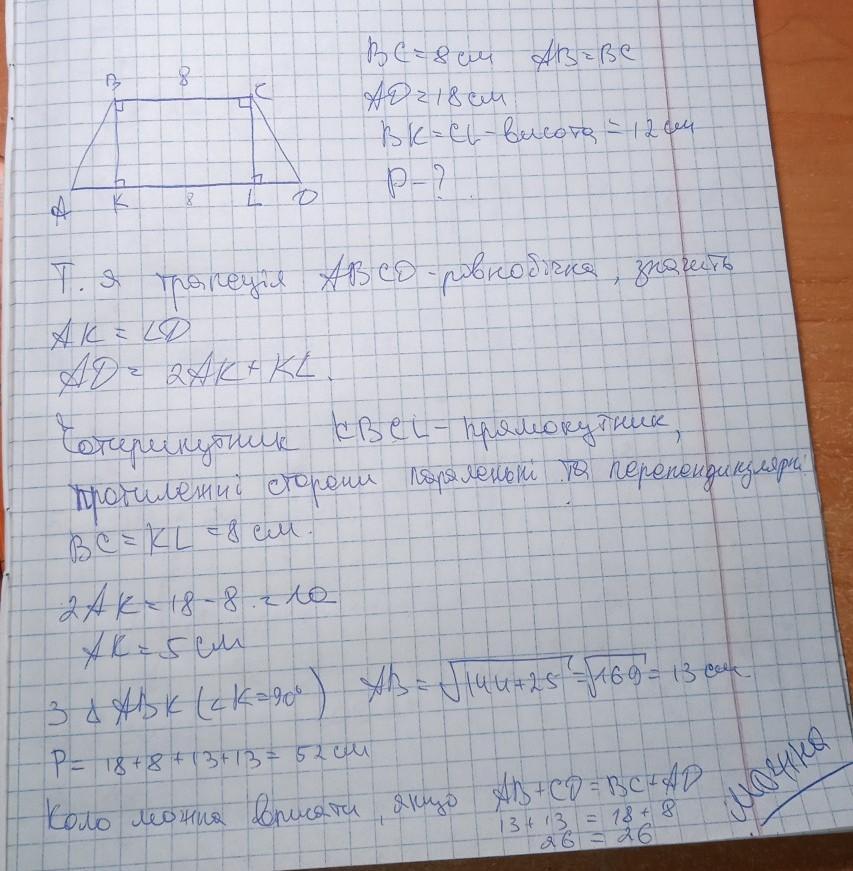 B 8 C
A K 8 L D
BC = 8 см AB = BC
AD = 18 см
BK = CL - висота = 12 см
P - ?
Т. я трапеція ABCD - рівнобічна, значить
AK = LD
AD = 2AK + KL.
Чотирикутник KBCL - прямокутник,
протилежні сторони паралельні та перепендикулярні.
BC = KL = 8 см.
2AK = 18 - 8 = 10
AK = 5 см
З Δ ABK (∠K = 90°) AB = √144+25 = √169 = 13 см
P = 18 + 8 + 13 + 13 = 52 см
Коло можна вписати, якщо AB + CD = BC + AD
13 + 13 = 18 + 8
26 = 26
можна